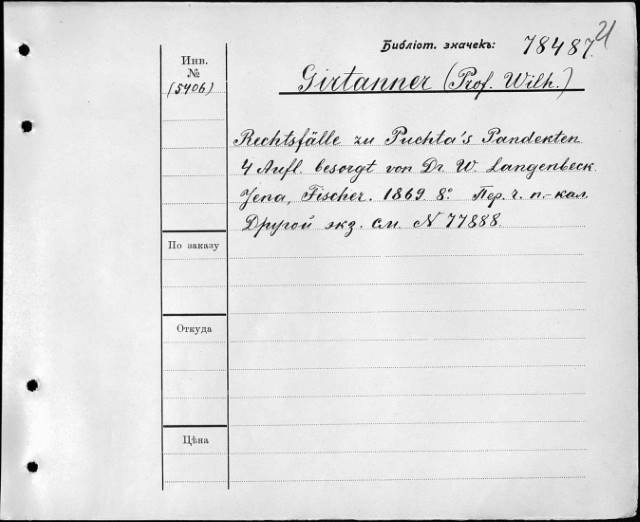 21
Библіот. значекъ: 78487.
Инв.
№
(5406)
Girtanner (Prof. Wilh.)
Rechtsfälle zu Puchta's Pandekten
4 Aufl. besorgt von Dr. W. Langenbeck.
Jena, Fischer. 1869. 8º. Пер. ч. п.-кал.
Другой экз. см. N 77888.
По заказу
Откуда
Цѣна